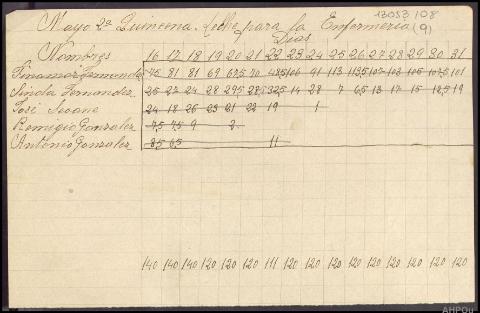 13053/108
Mayo 2ª Quincena. Leche para la Enfermeria (9)
Dias
Nombres 16 17 18 19 20 21 22 23 24 25 26 27 28 29 30 31
Fernandez 75 81 81 69 67,5 70 106 91 113 113,5 107 103 105 107,5 101
Fernandez 25 27 24 28 29,5 28,5 32,5 14 28 7 6,5 13 17 15 18,5 19
José Seoane 24 18 26 23 21 22 19 1
Remigio Gonzalez 7,5 7,5 9 2
Antonio Gonzalez 8,5 6,5 11
140 140 140 120 120 120 111 120 120 120 120 120 120 120 120 120
AHPOu